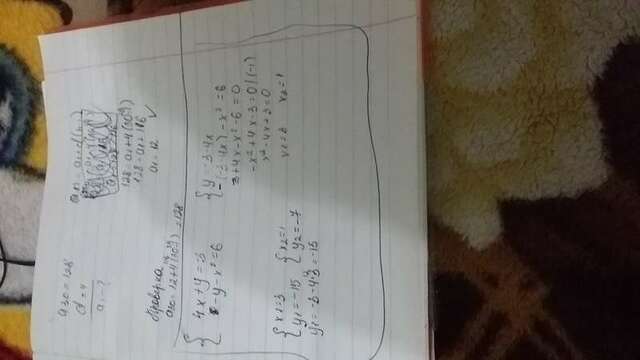 a30=128
d=4
a1-?
128=a1+4(30-1)
128-a1=116
a1=12
Проверка
a30=12+4(30-1)=128
{4x+y=-3
-y-x²=6
{y=-3-4x
-(-3-4x)-x²=6
3+4x-x²-6=0
-x²+4x-3=0|(-1)
x²-4x+3=0
x1=3 x2=1
{x1=3 {x2=1
y1=-15 y2=-7
y1=-3-4·3=-15